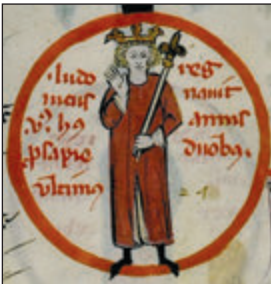 ·ludo
uicus
v⁹ hꝰ
ꝓsapie
vltimꝰ
reg
nauit
annis
duobꝫ.